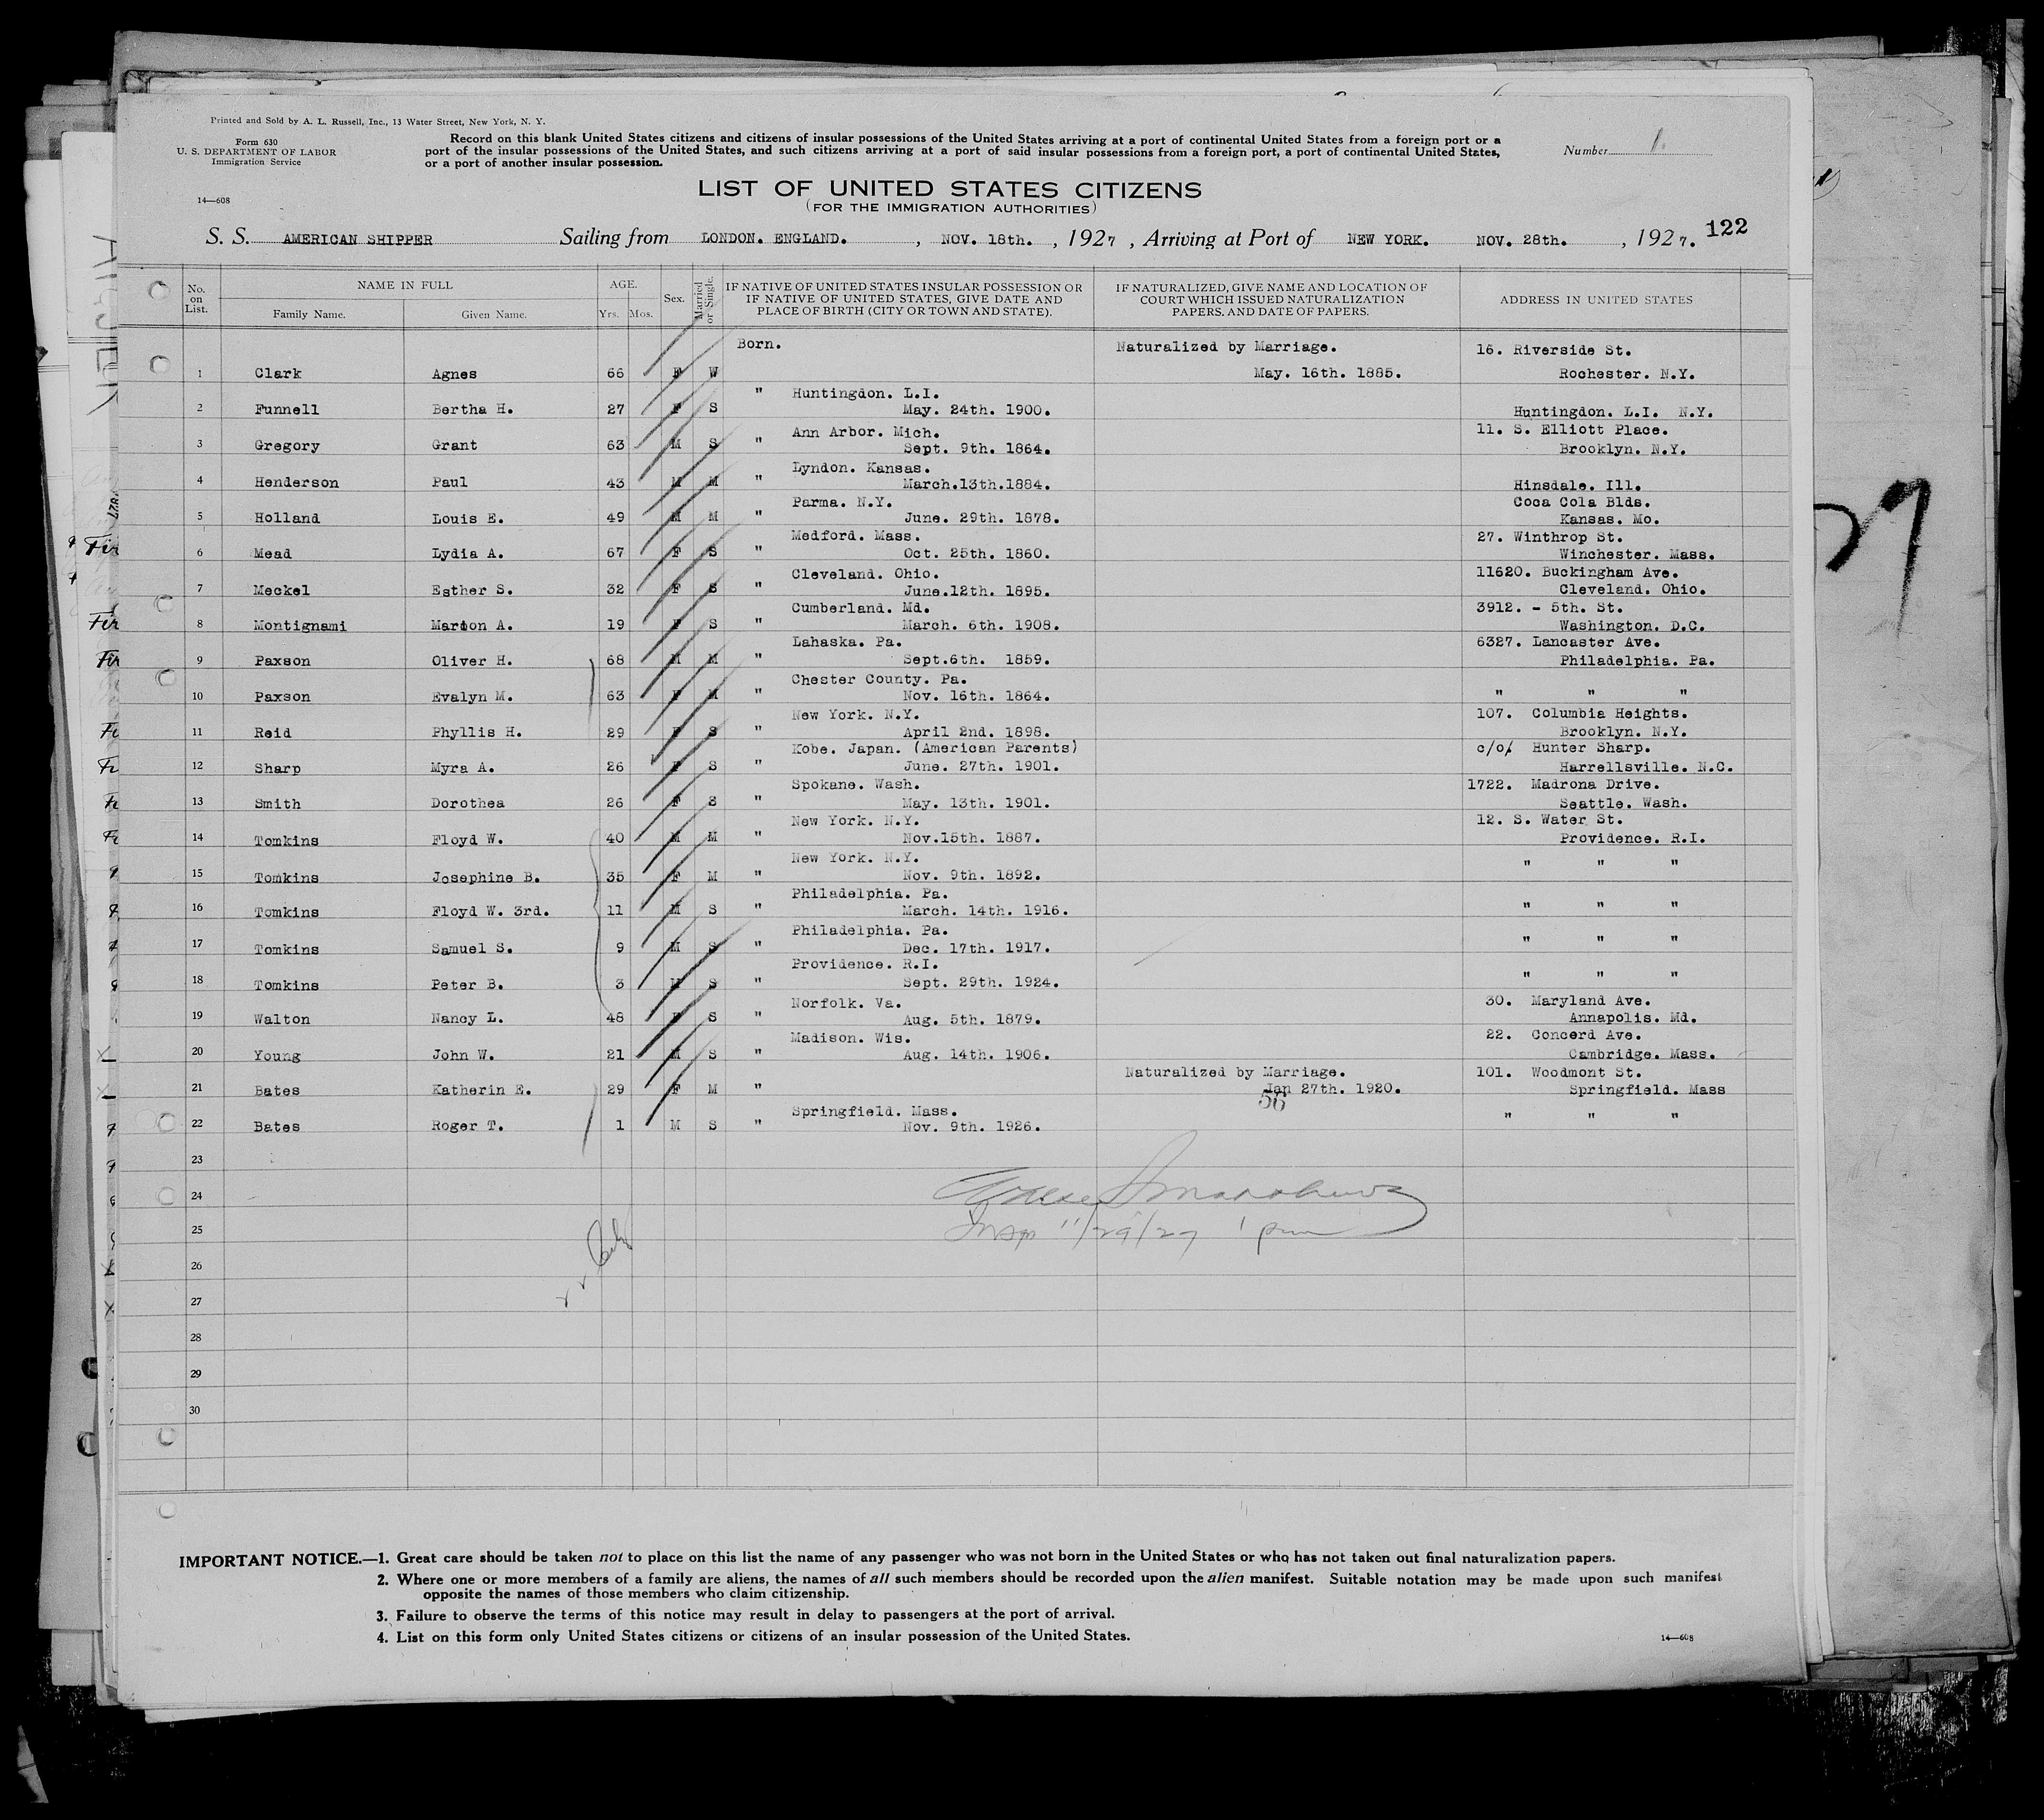 Printed and Sold by A. L. Russell, Inc., 13 Water Street, New York, N. Y.
Form 630
U. S. DEPARTMENT OF LABOR
Immigration Service
14—608
Record on this blank United States citizens and citizens of insular possessions of the United States arriving at a port of continental United States from a foreign port or a
port of the insular possessions of the United States, and such citizens arriving at a port of said insular possessions from a foreign port, a port of continental United States,
or a port of another insular possession.
Number 1.
LIST OF UNITED STATES CITIZENS
(FOR THE IMMIGRATION AUTHORITIES)
S. S. AMERICAN SHIPPER Sailing from LONDON. ENGLAND. , NOV. 18th. , 1927 , Arriving at Port of NEW YORK. NOV. 28th. , 1927. 122
No. on List. NAME IN FULL Family Name. Given Name. AGE. Yrs. Mos. Sex. Married or Single. IF NATIVE OF UNITED STATES INSULAR POSSESSION OR IF NATIVE OF UNITED STATES, GIVE DATE AND PLACE OF BIRTH (CITY OR TOWN AND STATE). IF NATURALIZED, GIVE NAME AND LOCATION OF COURT WHICH ISSUED NATURALIZATION PAPERS, AND DATE OF PAPERS. ADDRESS IN UNITED STATES
Born. Naturalized by Marriage. 16. Riverside St.
1 Clark Agnes 66 F W May. 16th. 1885. Rochester. N.Y.
" Huntingdon. L.I.
2 Funnell Bertha H. 27 F S May. 24th. 1900. Huntingdon. L.I. N.Y.
Ann Arbor. Mich. 11. S. Elliott Place.
3 Gregory Grant 63 M S " Sept. 9th. 1864. Brooklyn. N.Y.
Lyndon. Kansas.
4 Henderson Paul 43 M M " March.13th.1884. Hinsdale. Ill.
Parma. N.Y. Coca Cola Blds.
5 Holland Louis E. 49 M M " June. 29th. 1878. Kansas. Mo.
Medford. Mass. 27. Winthrop St.
6 Mead Lydia A. 67 F S " Oct. 25th. 1860. Winchester. Mass.
Cleveland. Ohio. 11620. Buckingham Ave.
7 Meckel Esther S. 32 F S " June.12th. 1895. Cleveland. Ohio.
Cumberland. Md. 3912. - 5th. St.
8 Montignami Marion A. 19 F S " March. 6th. 1908. Washington. D.C.
Lahaska. Pa. 6327. Lancaster Ave.
9 Paxson Oliver H. 68 M M " Sept.6th. 1859. Philadelphia. Pa.
Chester County. Pa.
10 Paxson Evalyn M. 63 F M " Nov. 16th. 1864. " " "
New York. N.Y. 107. Columbia Heights.
11 Reid Phyllis H. 29 F S " April 2nd. 1898. Brooklyn. N.Y.
Kobe. Japan. (American Parents) c/o/ Hunter Sharp.
12 Sharp Myra A. 26 F S " June. 27th. 1901. Harrellsville. N.C.
Spokane. Wash. 1722. Madrona Drive.
13 Smith Dorothea 26 F S " May. 13th. 1901. Seattle. Wash.
New York. N.Y. 12. S. Water St.
14 Tomkins Floyd W. 40 M M " Nov.15th. 1887. Providence. R.I.
New York. N.Y. " " "
15 Tomkins Josephine B. 35 F M " Nov. 9th. 1892.
Philadelphia. Pa.
16 Tomkins Floyd W. 3rd. 11 M S " March. 14th. 1916. " " "
Philadelphia. Pa.
17 Tomkins Samuel S. 9 M S " Dec. 17th. 1917. " " "
Providence. R.I.
18 Tomkins Peter B. 3 M S " Sept. 29th. 1924. " " "
Norfolk. Va. 30. Maryland Ave.
19 Walton Nancy L. 48 F S " Aug. 5th. 1879. Annapolis. Md.
Madison. Wis. 22. Concerd Ave.
20 Young John W. 21 M S " Aug. 14th. 1906. Cambridge. Mass.
Naturalized by Marriage. 101. Woodmont St.
21 Bates Katherin E. 29 F M " Jan 27th. 1920. Springfield. Mass
56
Springfield. Mass. " " "
22 Bates Roger T. 1 M S " Nov. 9th. 1926.
23
24
25 Insp 11/29/27 1 pm
26
27
28
29
30
IMPORTANT NOTICE.—1. Great care should be taken not to place on this list the name of any passenger who was not born in the United States or who has not taken out final naturalization papers.
2. Where one or more members of a family are aliens, the names of all such members should be recorded upon the alien manifest. Suitable notation may be made upon such manifest
opposite the names of those members who claim citizenship.
3. Failure to observe the terms of this notice may result in delay to passengers at the port of arrival.
4. List on this form only United States citizens or citizens of an insular possession of the United States.
14—608